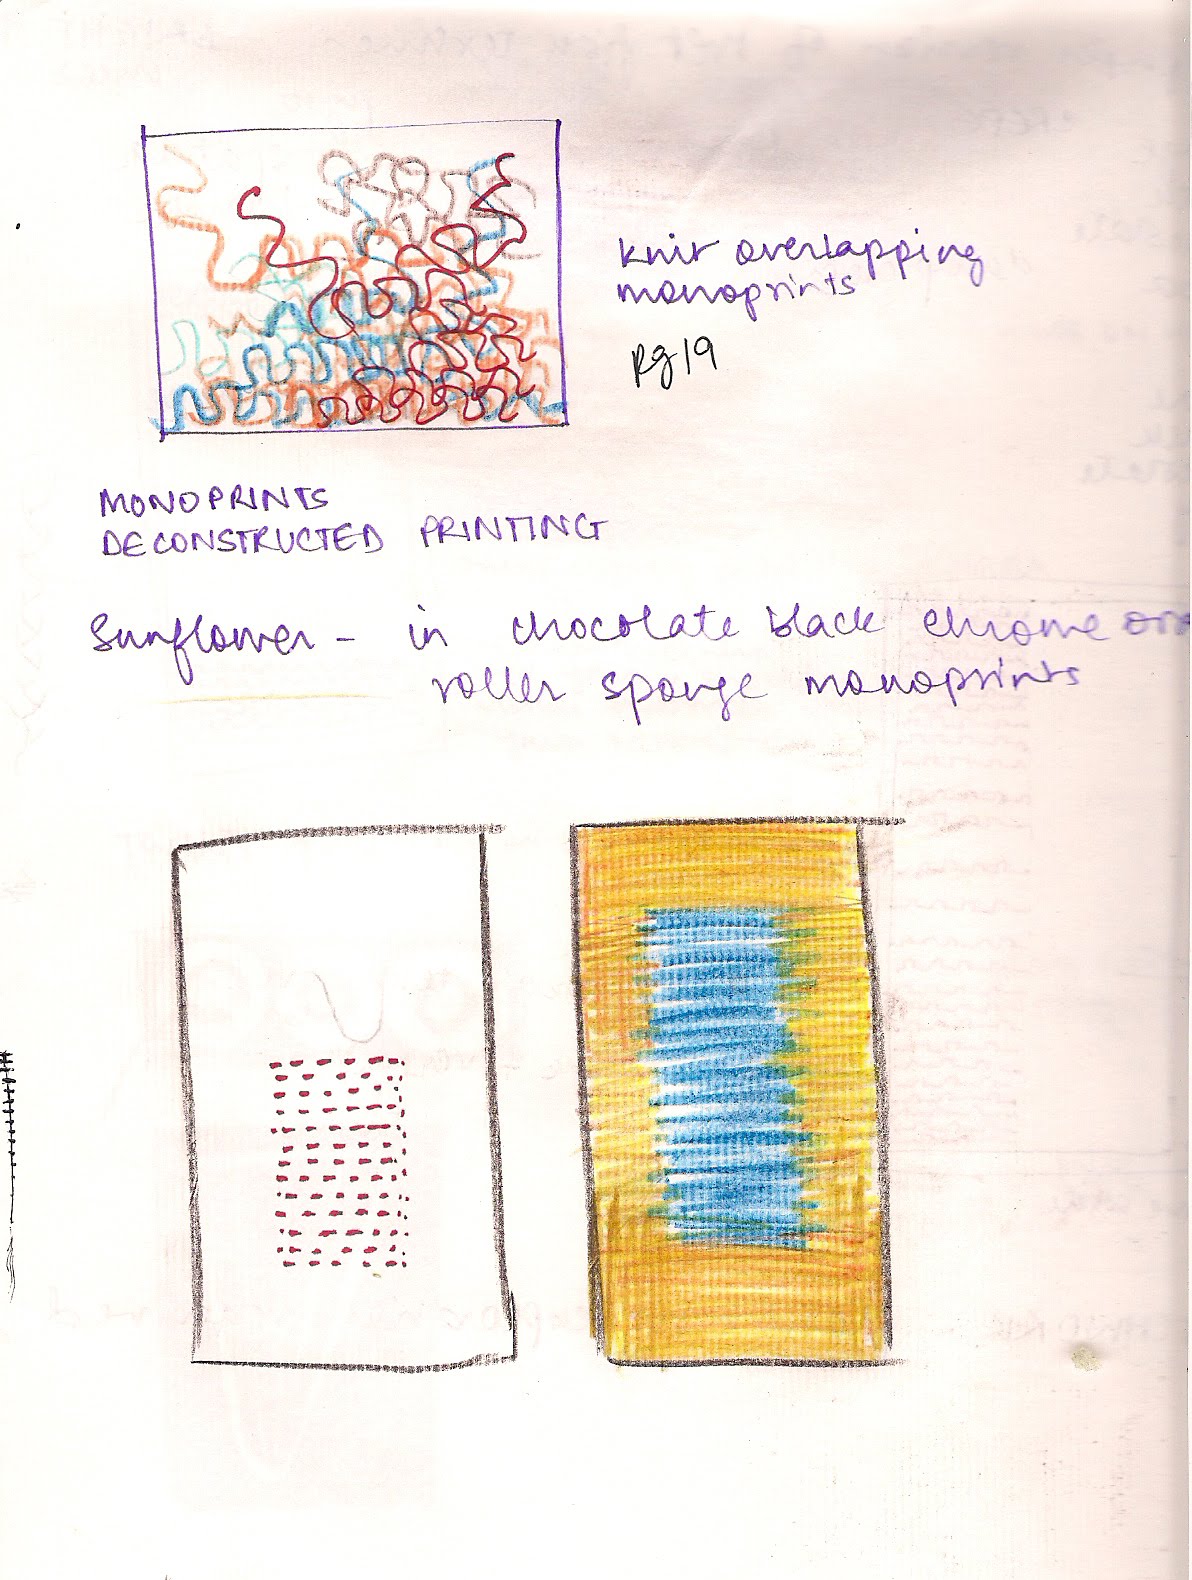 knit overlapping
monoprints
Pg 19
MONOPRINTS
DECONSTRUCTED PRINTING
Sunflower - in chocolate black chrome
roller sponge monoprints